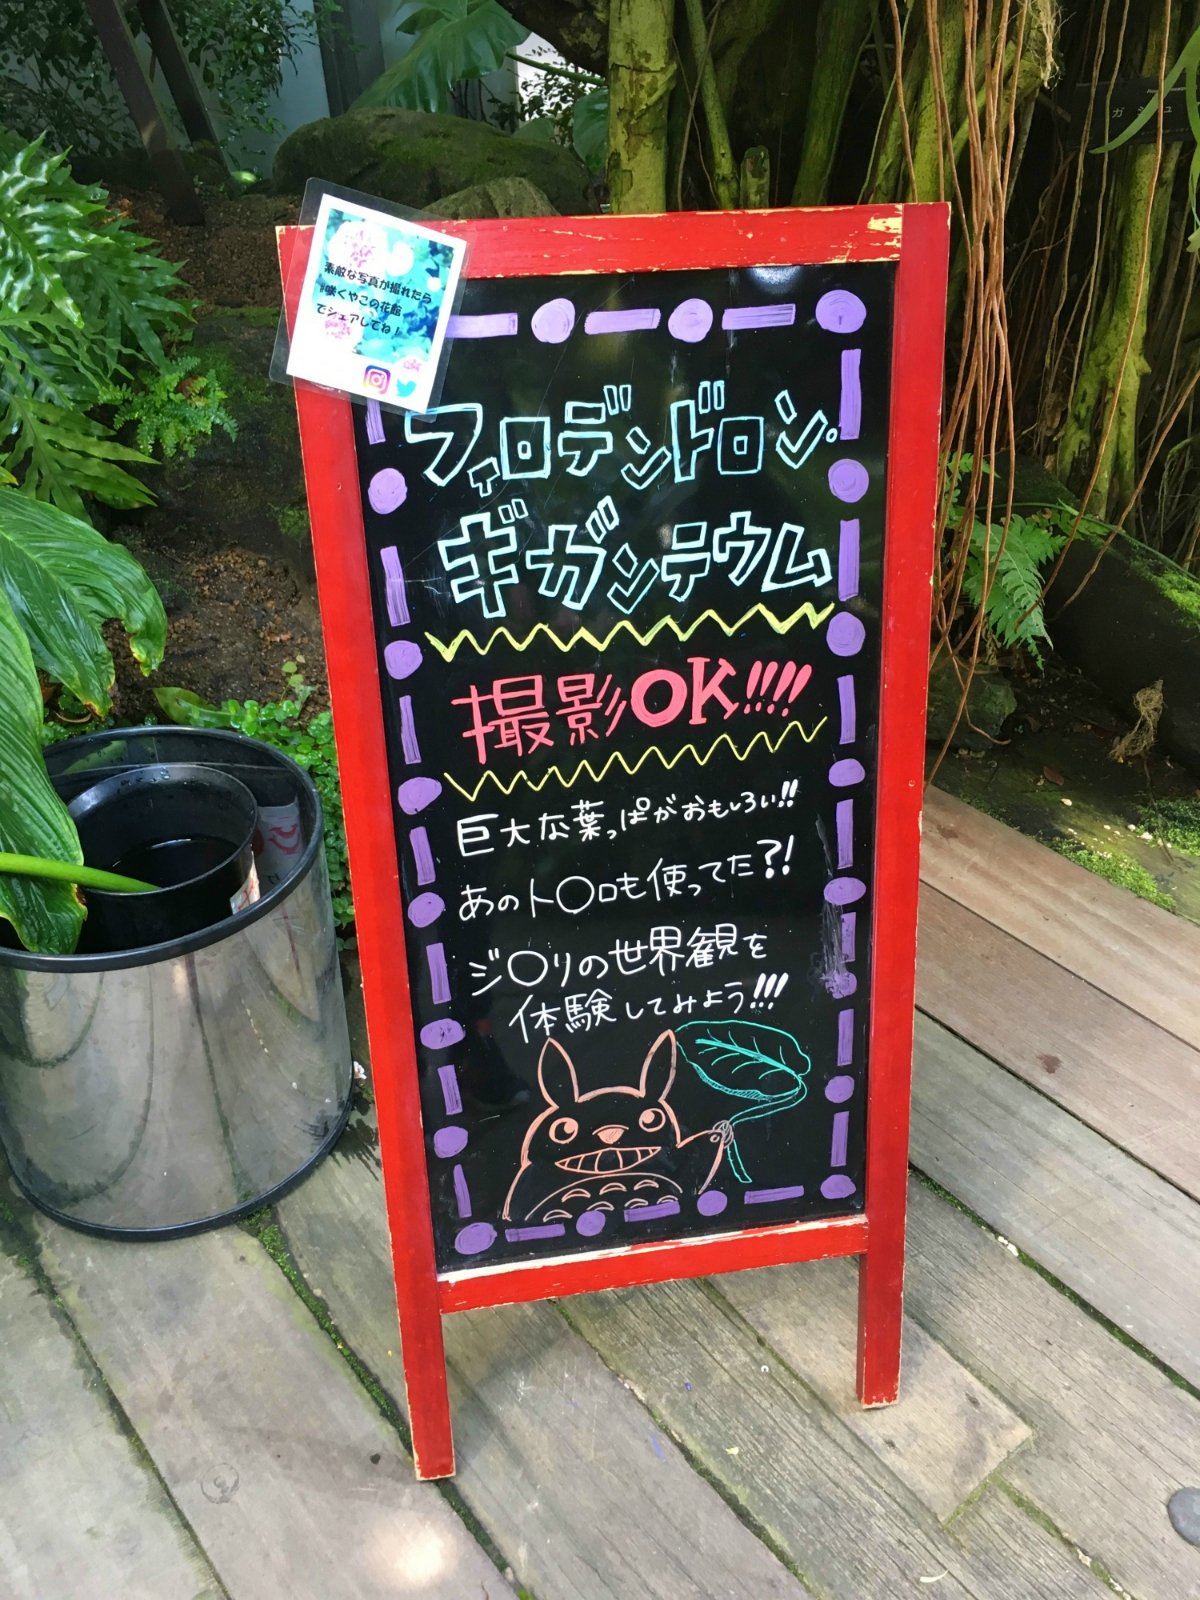 素敵な写真が撮れたら
#咲くやこの花館
でシェアしてね！
フィロデンドロン・
ギガンテウム
撮影OK!!!!
巨大な葉っぱがおもしろい!!
あのト〇ロも使ってた?!
ジ〇リの世界観を
体験してみよう!!!